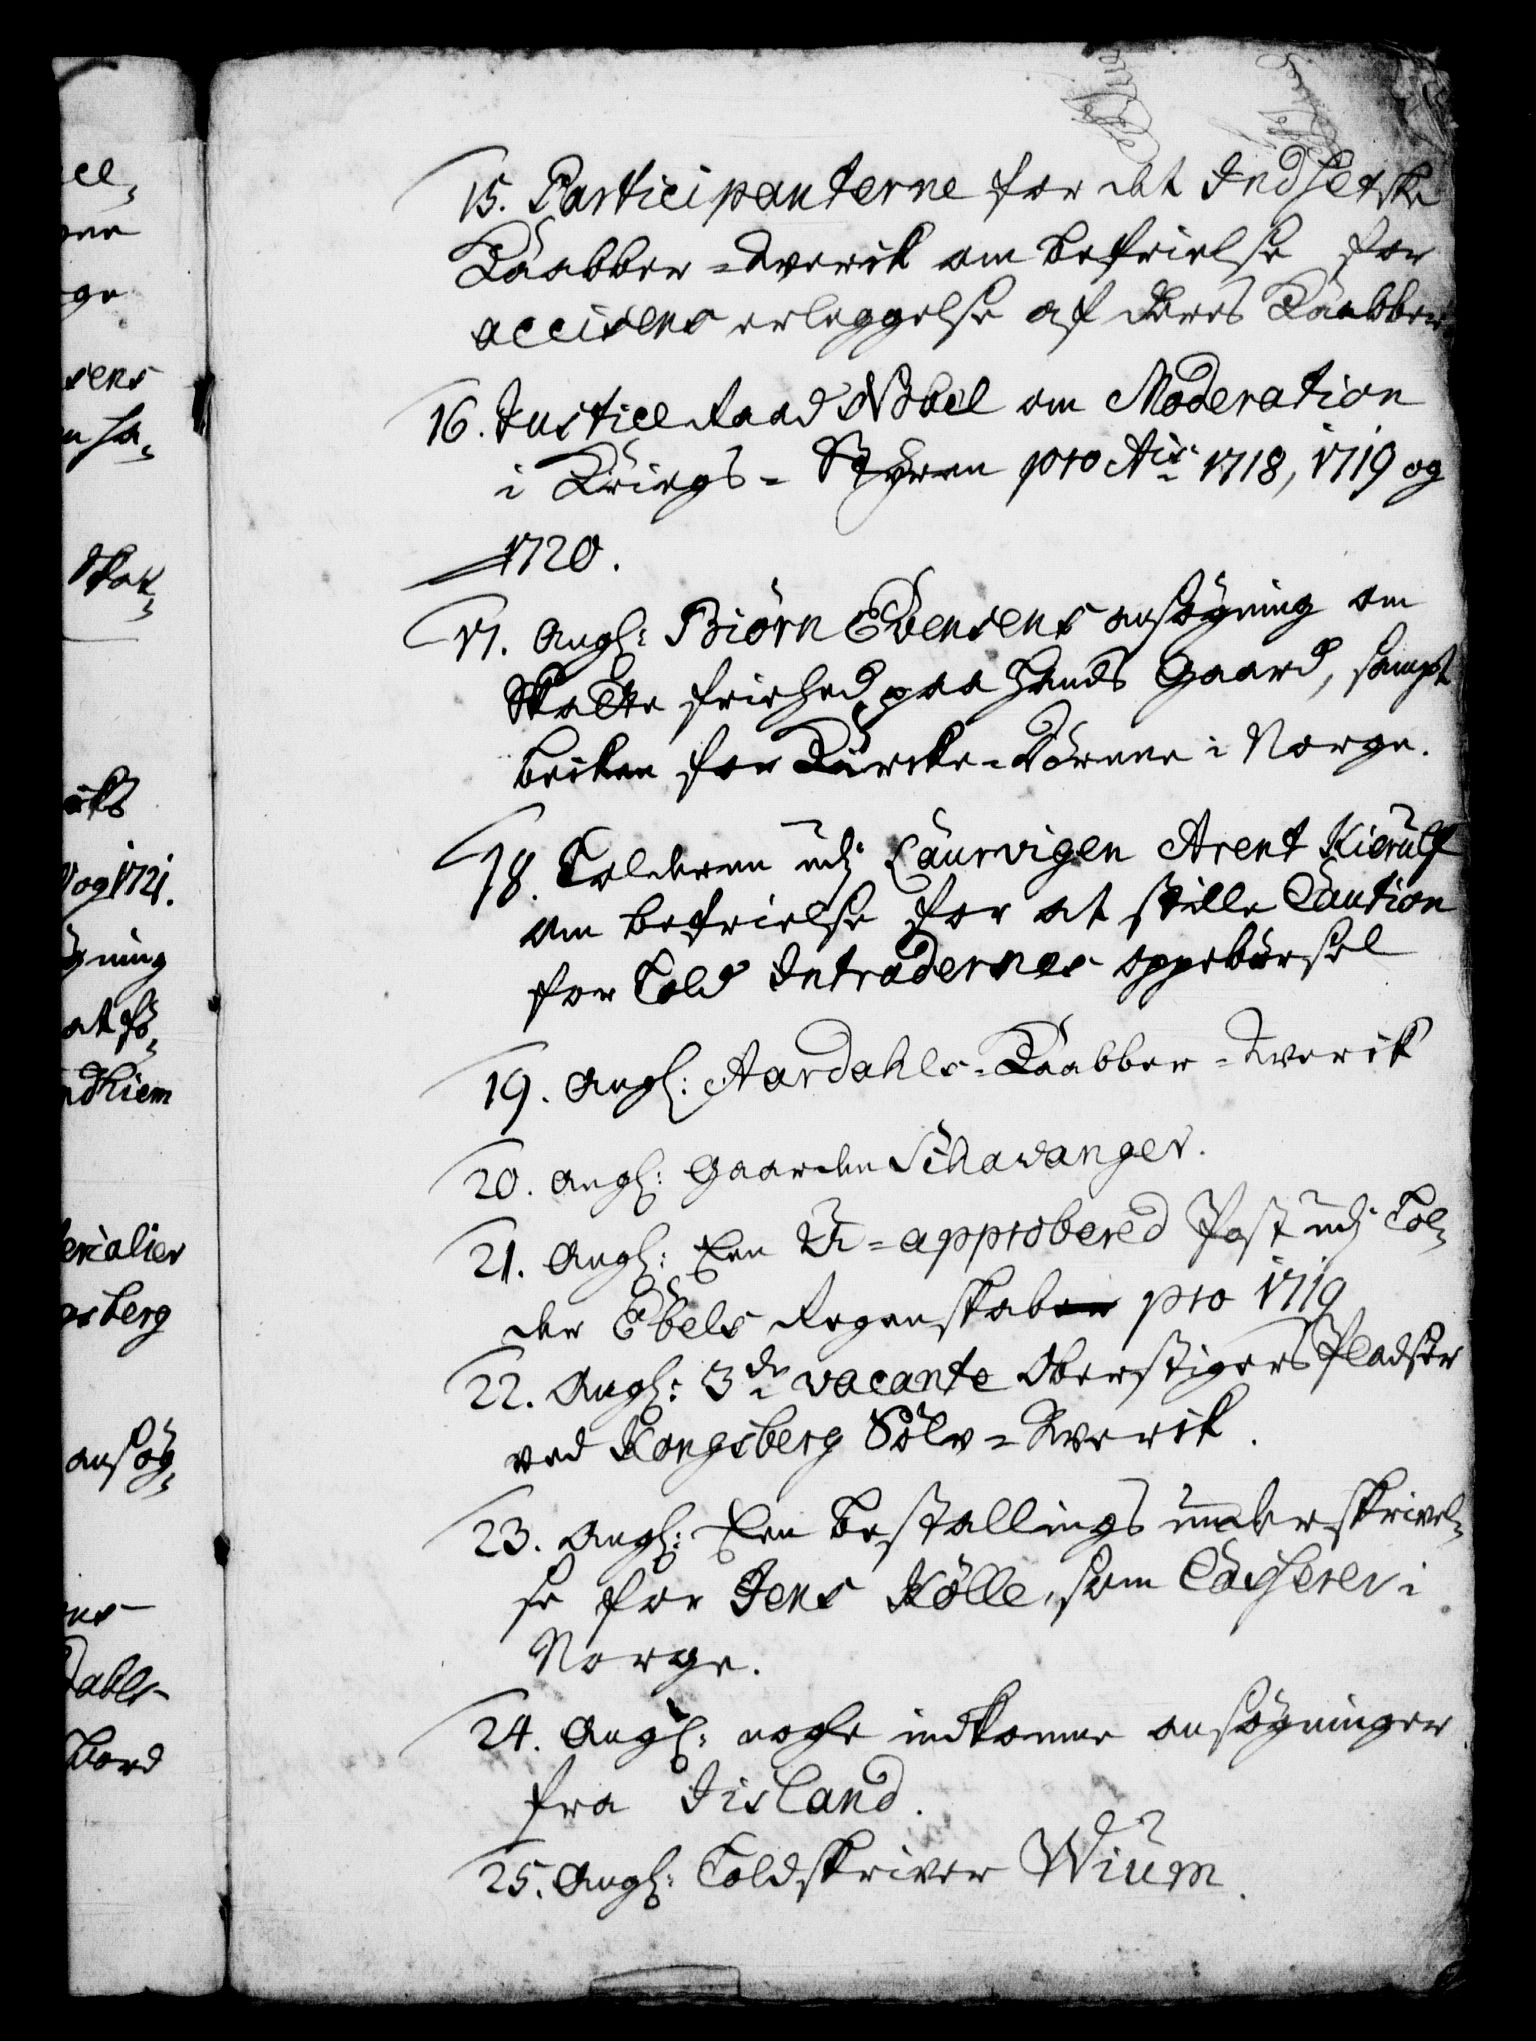 15. Participanterne for det Indsetske
Kaabber-Werck om befrielse for
accisens erleggelse af deres Kaabber.
16. Justice Raad Nobel om Moderation
i Kriegs-Styren pro Ais 1718, 1719 og
1720.
17. Angl: Biörn Ebensens ansøgning om
Skatte frihed paa hands Gaard, sampt
for Kürcke-Dörene i Norge.
18. Tolderen udj Laurvigen Arent Kierülf
om befrielse for at stille Caution
for Told Intradernes oppebørsel
19. Angl: Aardahls-Kaabber-Werck
20. Angl: Gaarden Schavanger.
21. Angl: Een U-approbered Post udj Tol-
der Ebels Regenskaber pro 1719
22. Angl: 3de vacante Oberstigers Pladser
ved Kongsberg Sölv-Werck.
23. Angl: Een bestallings underskrivel-
se for Jens Kölle, som Casserer i
Norge.
24. Angl: nogle indkomne ansøgninger
fra Jisland.
25. Angl: Toldskriver Wium.
cel-
ge
sens
Skat-
og 1721.
gning
at
dhiem
erialier
gsberg
ansøg-
dahls-
bord